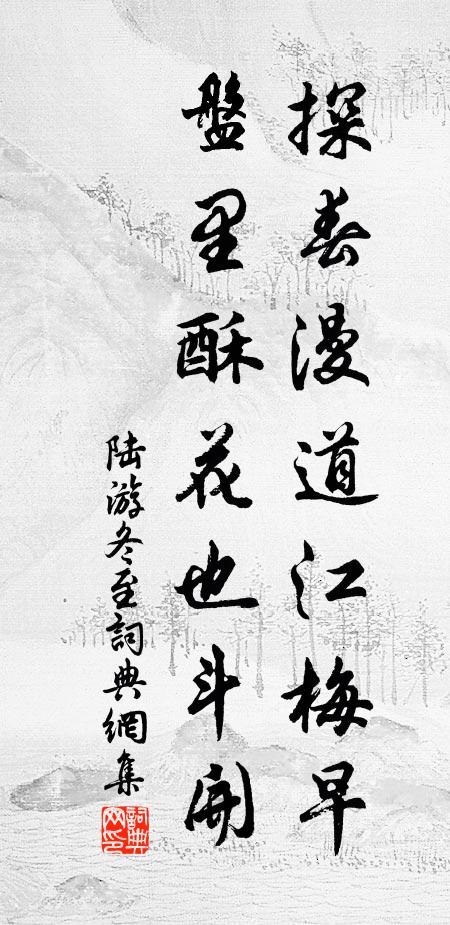 探春漫道江梅早
盤里酥花也斗開
陆游冬至詞典網集
詞典網印